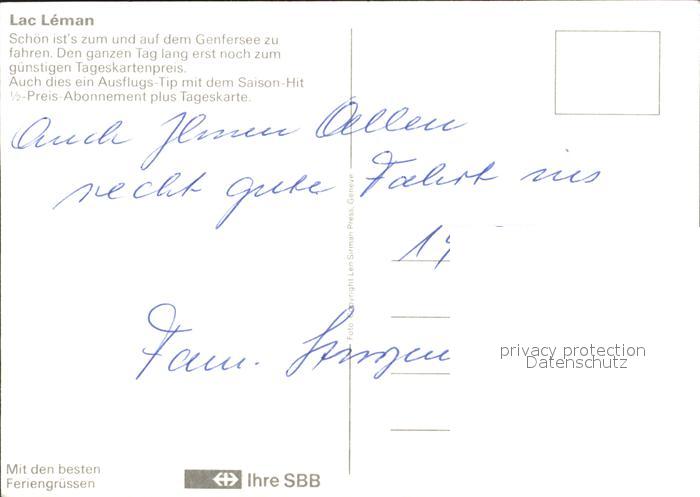 Lac Léman
Schön ist's zum und auf dem Genfersee zu
fahren. Den ganzen Tag lang erst noch zum
günstigen Tageskartenpreis.
Auch dies ein Ausflugs-Tip mit dem Saison-Hit
½-Preis-Abonnement plus Tageskarte.
Auch Ihnen Allen
recht gute Fahrt ins
Fam.
Foto + Copyright Len Sirman Press, Genève
privacy protection
Datenschutz
Mit den besten
Feriengrüssen
Ihre SBB